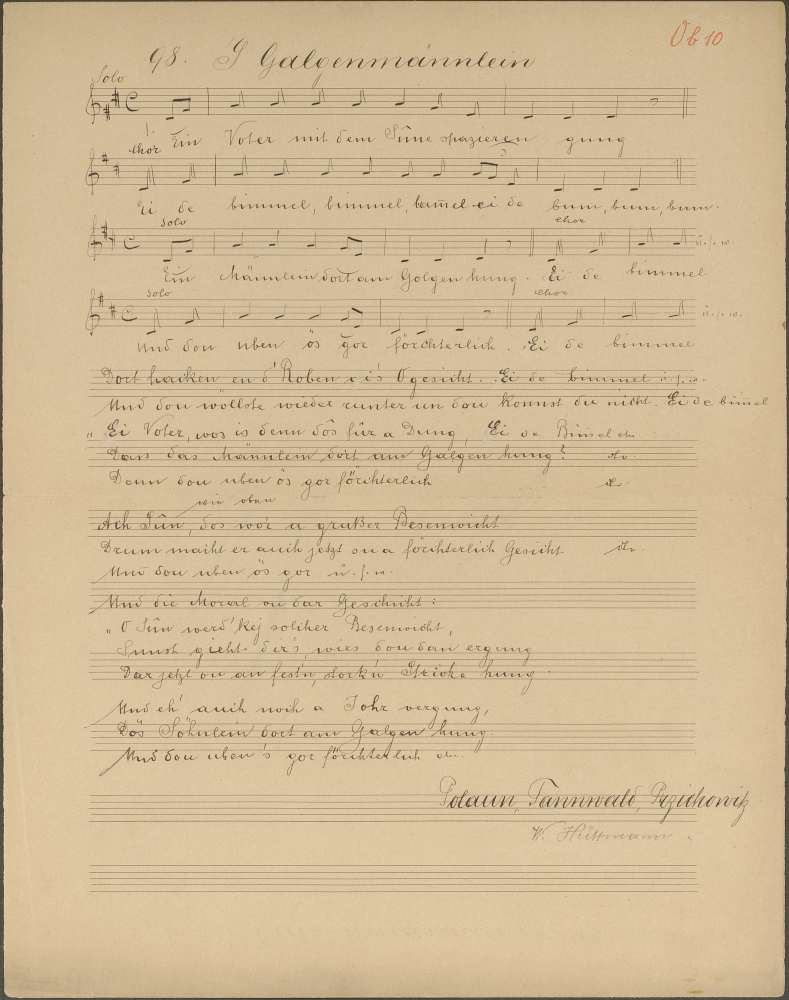 Ob 10
98. 'S Galgenmännlein
Solo
1.
Ein Voter mit dem Sûne spazieren gung
Chor
3
Ei de bimmel, bimmel, bammel ei de bum, bum, bum.
Solo
Chor
Ein Männlein dort am Galgen hung. Ei de bimmel
u. s. w.
Solo
Chor
Und dou uben ös gor förchterlich. Ei de bimmel
u. s. w.
Dort hacken en d' Roben
Ogesicht. Ei de bimmel u. s. w.
Und dou wollste wieder runter un dou konnst du nicht. Ei de bimel
„Ei Voter, wos is denn dôs für a Dung, Ei de Bimel etc.
Dass das Männlein dort am Galgen hung? etc.
Denn dou uben ös gor förchterlich etc.
wie oben
Ach Sûn, dos wor a grußer Besenwicht
Drum macht er auch jetzt su a förchterlich Gesicht. etc.
Und dou uben ös gor u. s. w.
Und die Moral ou dar Geschicht:
„O Sûn werd' kej solcher Besenwicht,
Sunst gieht dir's, wies dou dan ergung
Dar jetzt ou an fest'n, stork'n Stricke hung.
Und eh' auch noch a Johr vergung,
Dös Söhnlein dort am Galgen hung.
Und dou uben 's gor förchterlich etc.
Polaun, Tannwald, Przichowitz
W. Hüttmann.